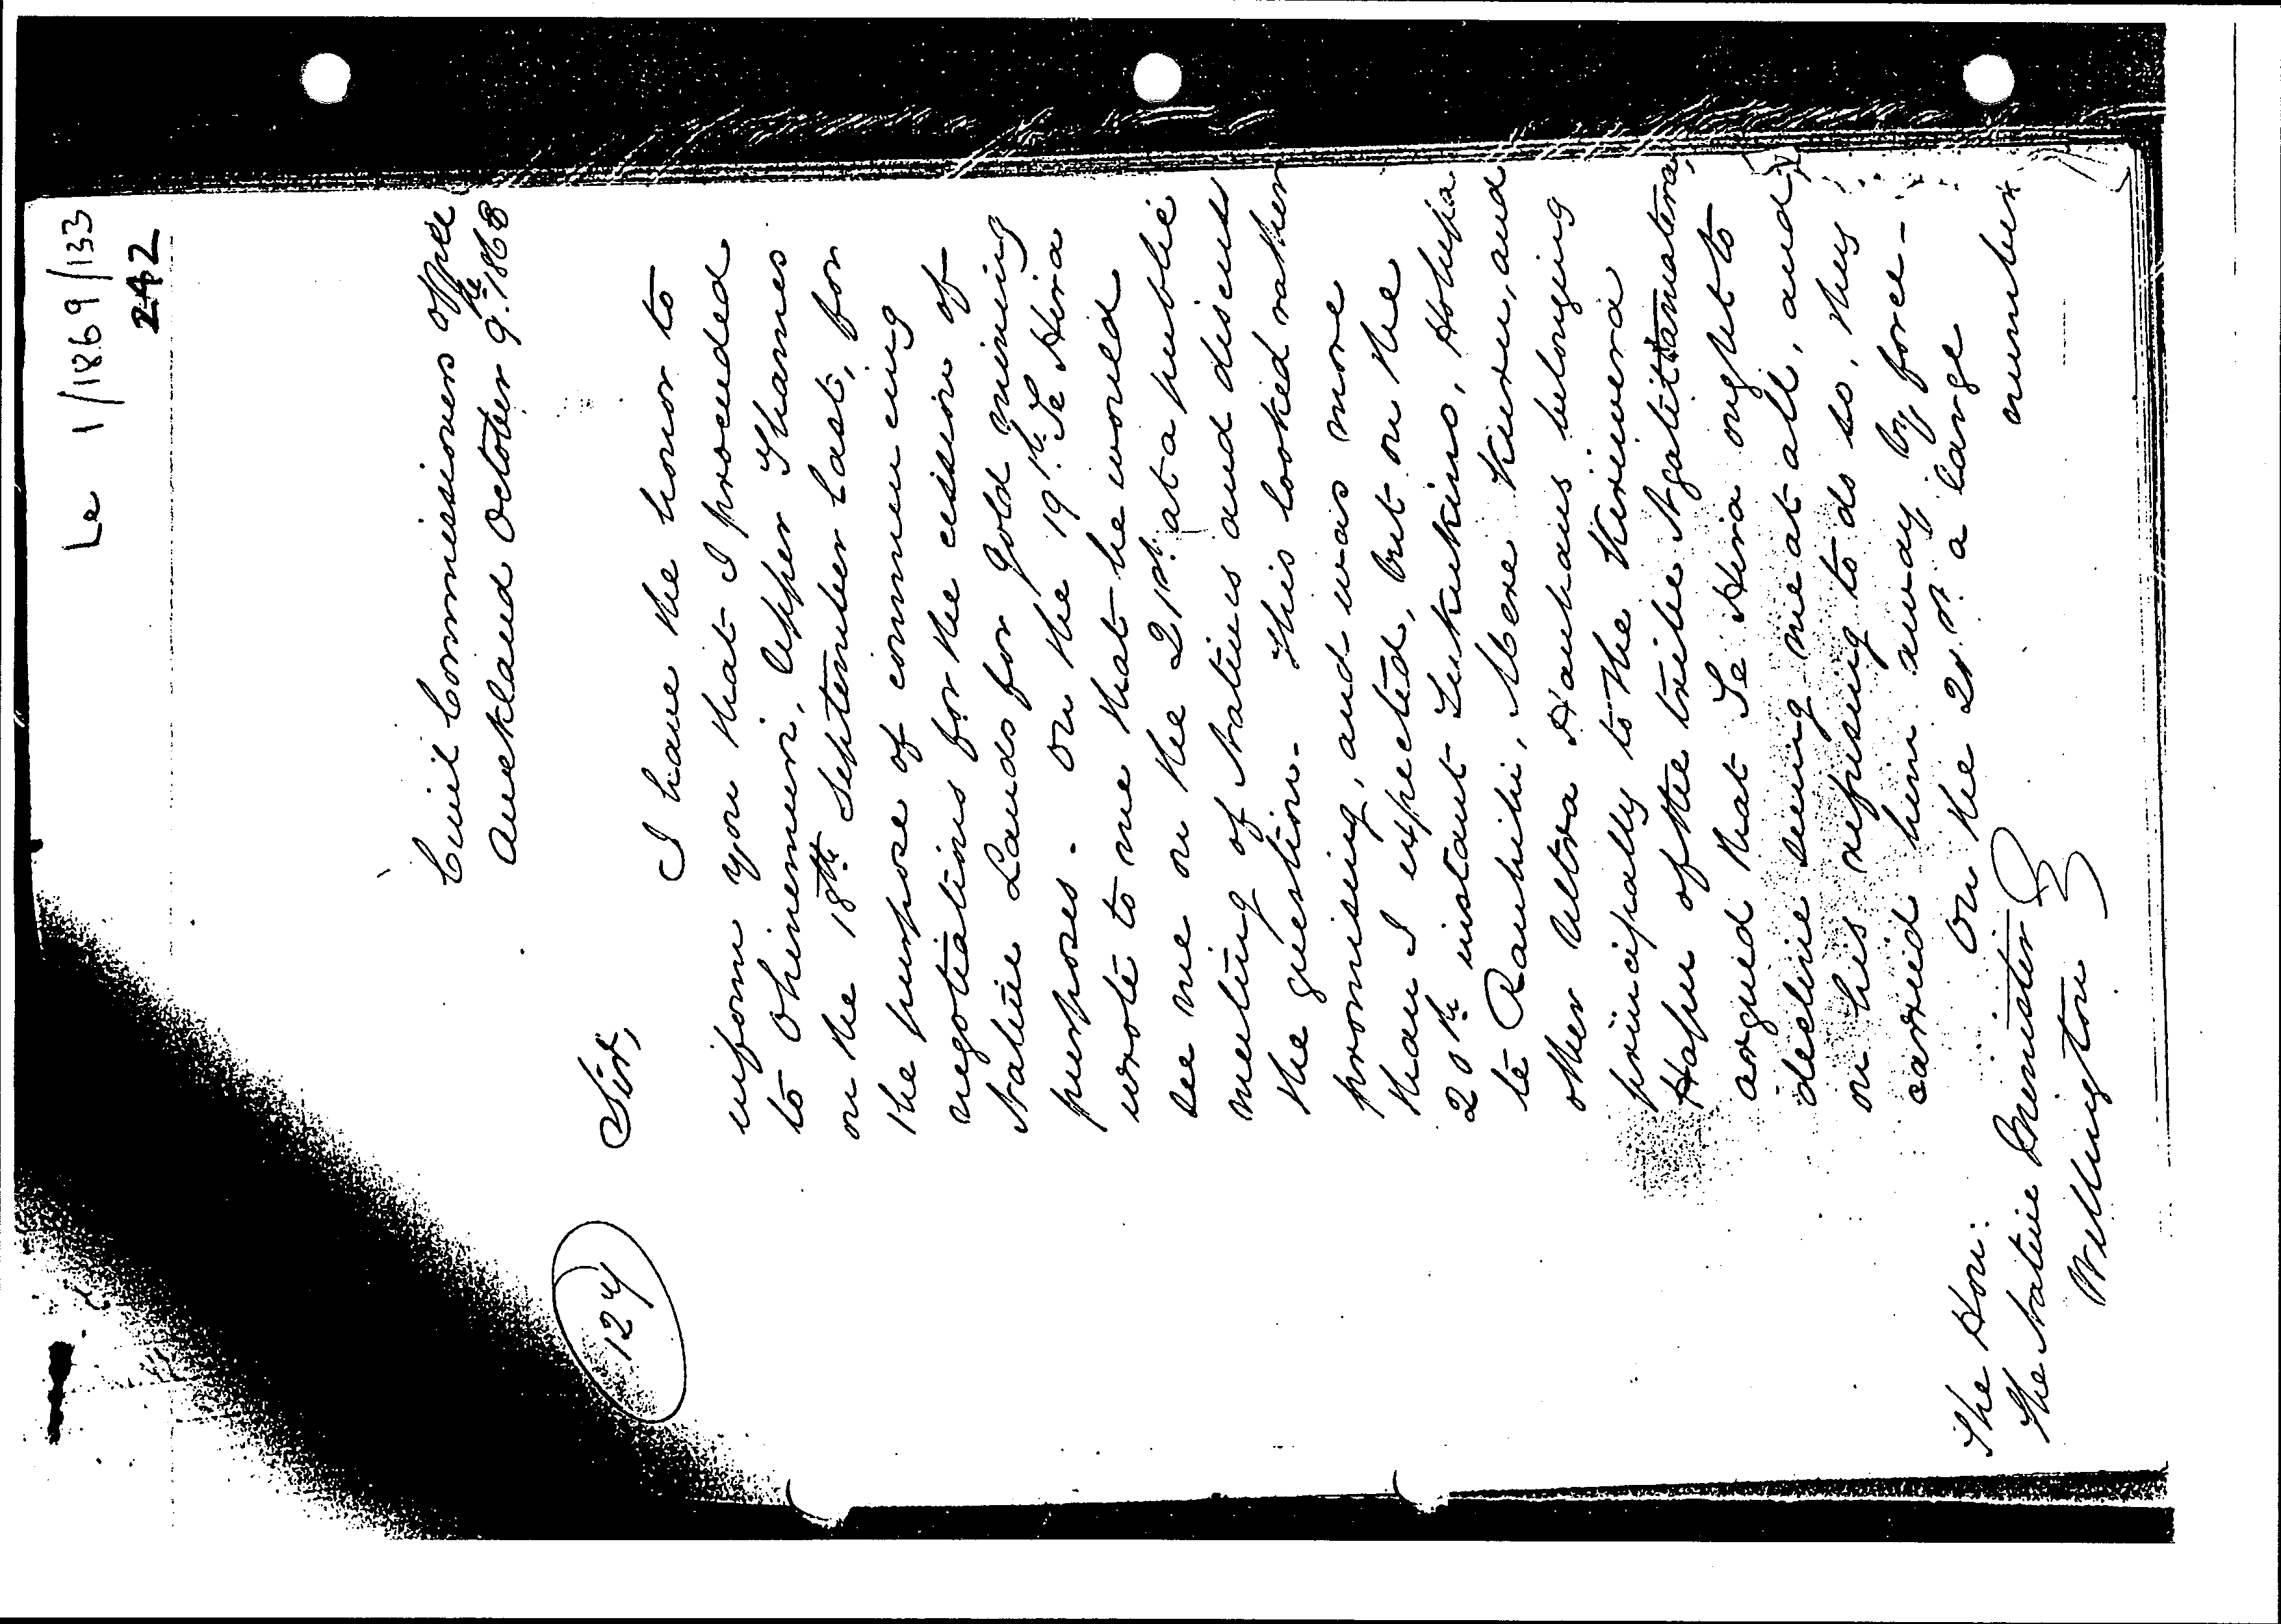 Le 1/1869/133
242
Civil Commissioners Office
Auckland October 9th 1868
Sir,
124
I have the honor to
inform you that I proceeded
to Ohinemuri, Upper Thames
on the 18th September last, for
the purpose of commencing
negotiations for the cession of
Native Lands for Gold mining
purposes - On the 19th Te Hira
wrote to me that he would
see me on the 21st at a public
meeting of Natives and discuss
the question - This looked rather
promising, and was more
than I expected, but on the
20th instant Tukukino, Hohepa
te Rauhihi, Mere Kuru, and
other Ultra Hauhaus belonging
principally to the Kiriwera
Hapu of the tribe Ngatitamatera,
argued that Te Hira ought to
decline seeing me at all, and
on his refusing to do so, they
carried him away by force -
On the 21st a large
number
The Hon:
The Native Minister
Wellington